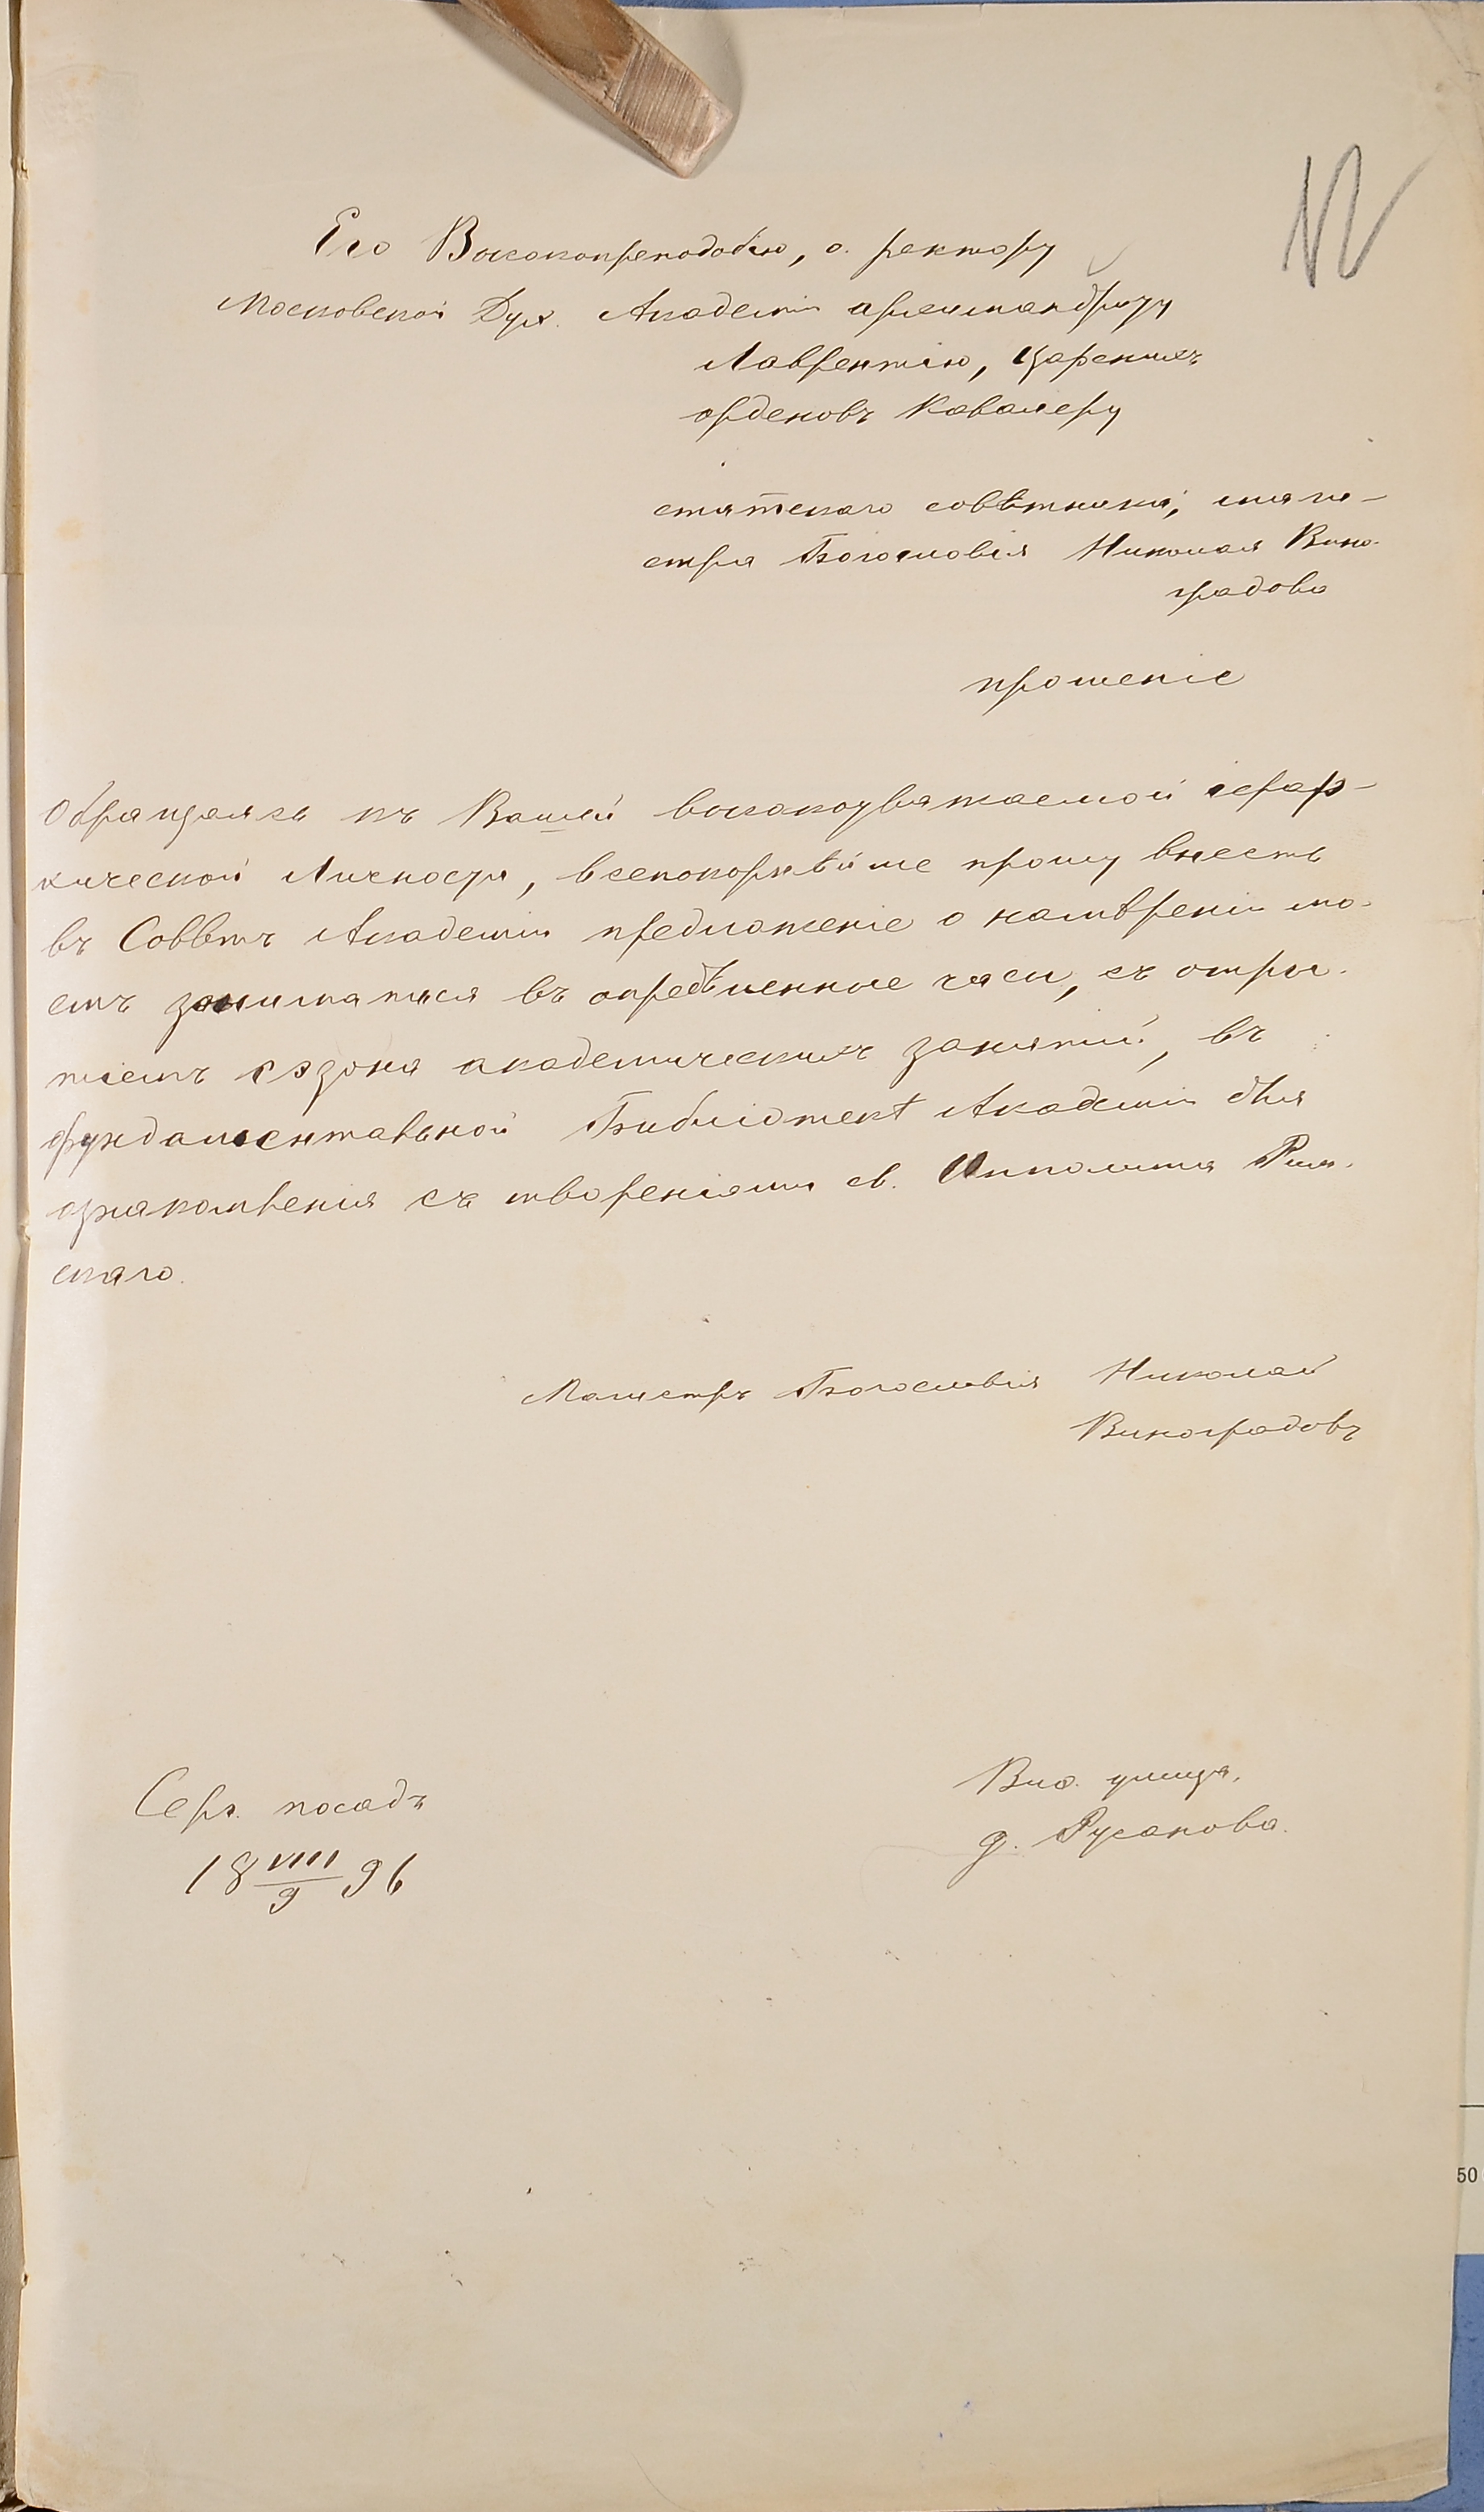 12
Его Высокопреподобію, о. ректору
Московской Дух. Академіи архимандриту
Лаврентію, Царскихъ
орденовъ Кавалеру
статскаго совѣтника, маги-
стра Богословія Николая Вино-
градова
прошеніе
Обращаясь къ Вашей высокоуважаемой іерар-
хической Личности, всепокорнѣйше прошу внесть
въ Совѣтъ Академіи предложеніе о намѣреніи мо-
емъ заниматься въ опредѣленные часы, съ откры-
тіемъ сэзона академическихъ занятій, въ
фундаментальной Библіотекѣ Академіи для
ознакомленія съ твореніями св. Ипполита Рим-
скаго.
Магистръ Богословія Николай
Виноградовъ
Серг. посадъ
18 VIII/9 96
улица.
д. Русакова.
50